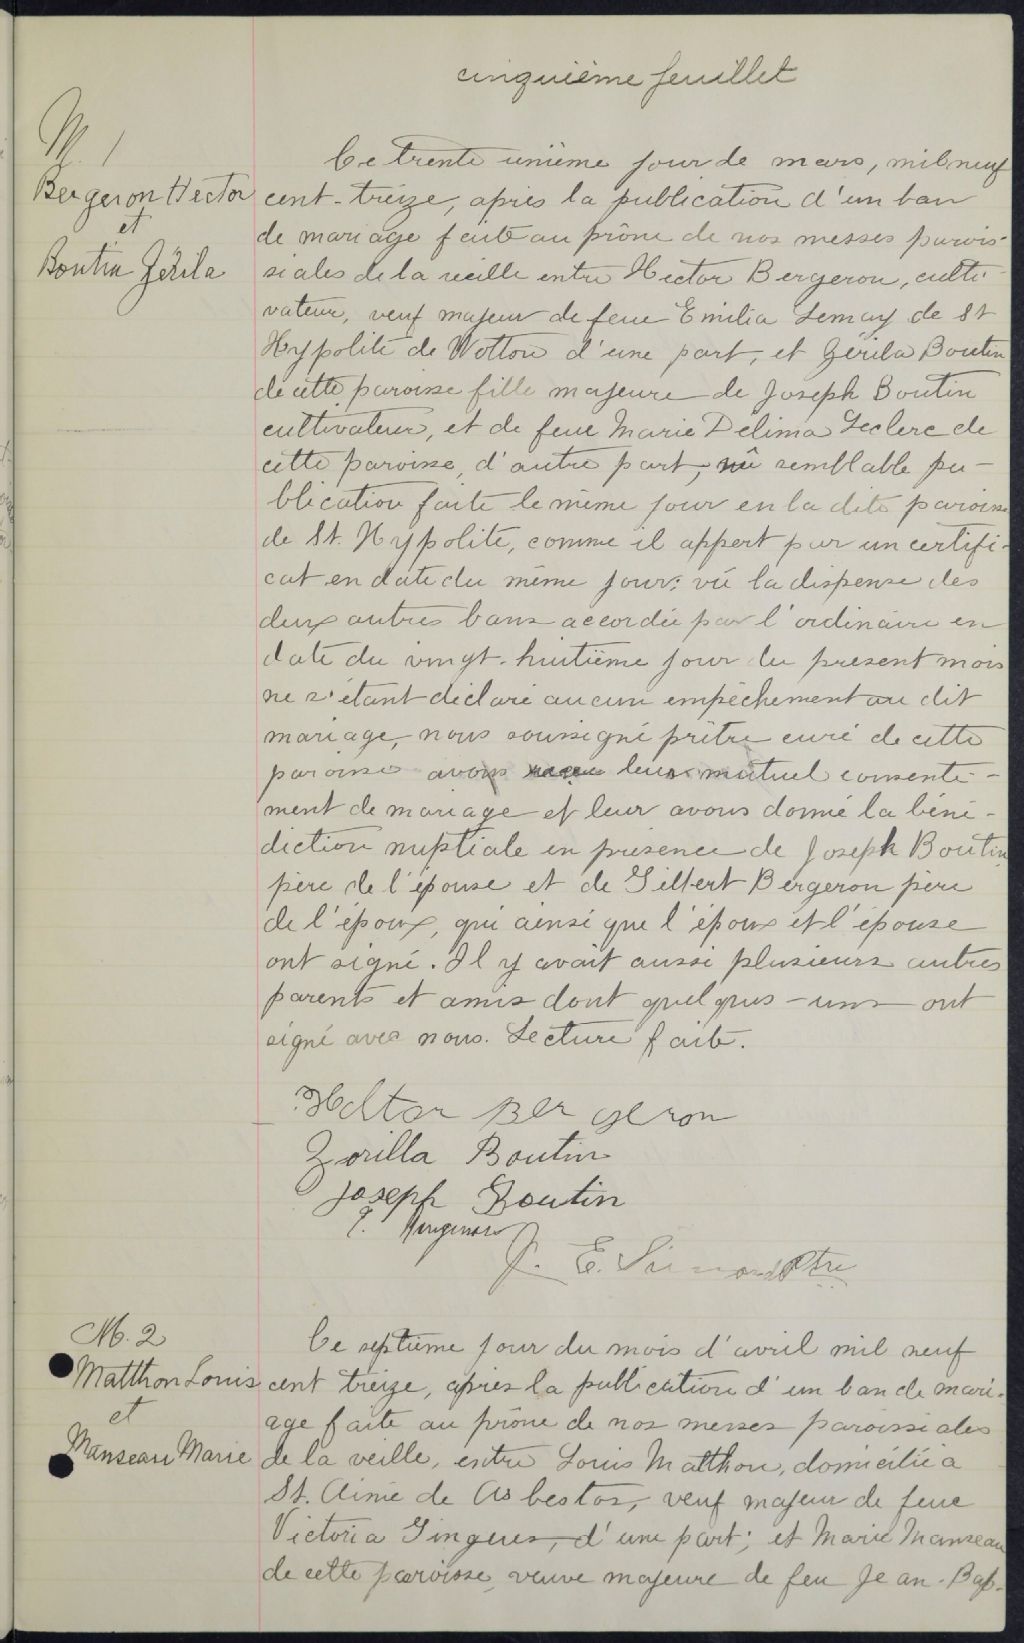 cinquième feuillet
M. 1
Bergeron Hector
et
Boutin Zérila
Ce trente unième jour de mars, mil neuf
cent-treize, après la publication d'un ban
de mariage faite au prône de nos messes parois-
siales de la veille entre Hector Bergeron, culti-
vateur, veuf majeur de feue Emilia Lemay de St
Hypolite de Wotton d'une part, et Zérila Boutin
de cette paroisse fille majeure de Joseph Boutin
cultivateur, et de feue Marie Délima Leclerc de
cette paroisse, d'autre part, vû semblable pu-
blication faite le même jour en la dite paroisse
de St. Hypolite, comme il appert par un certifi-
cat en date du même jour; vû la dispense des
deux autres bans accordée par l'ordinaire en
date du vingt-huitième jour du présent mois
ne s'étant déclaré aucun empêchement au dit
mariage, nous soussigné prêtre curé de cette
paroisse avons reçu leur mutuel consente-
ment de mariage et leur avons donné la béné-
diction nuptiale en présence de Joseph Boutin
père de l'épouse et de Gilbert Bergeron père
de l'époux, qui ainsi que l'époux et l'épouse
ont signé. Il y avait aussi plusieurs autres
parents et amis dont quelques-uns ont
signé avec nous. Lecture faite.
Hector Bergeron
Zorilla Boutin
Joseph Boutin
Bergeron
J. E. Simard Ptre
M. 2
Matthon Louis
et
Manseau Marie
Ce septième jour du mois d'avril mil neuf
cent treize, après la publication d'un ban de mari-
age faite au prône de nos messes paroissiales
de la veille, entre Louis Matthon, domicilié à
St. Aimé de Asbestos, veuf majeur de feue
Victoria Gingues, d'une part; et Marie Manseau
de cette paroisse, veuve majeure de feu Jean-Bap-